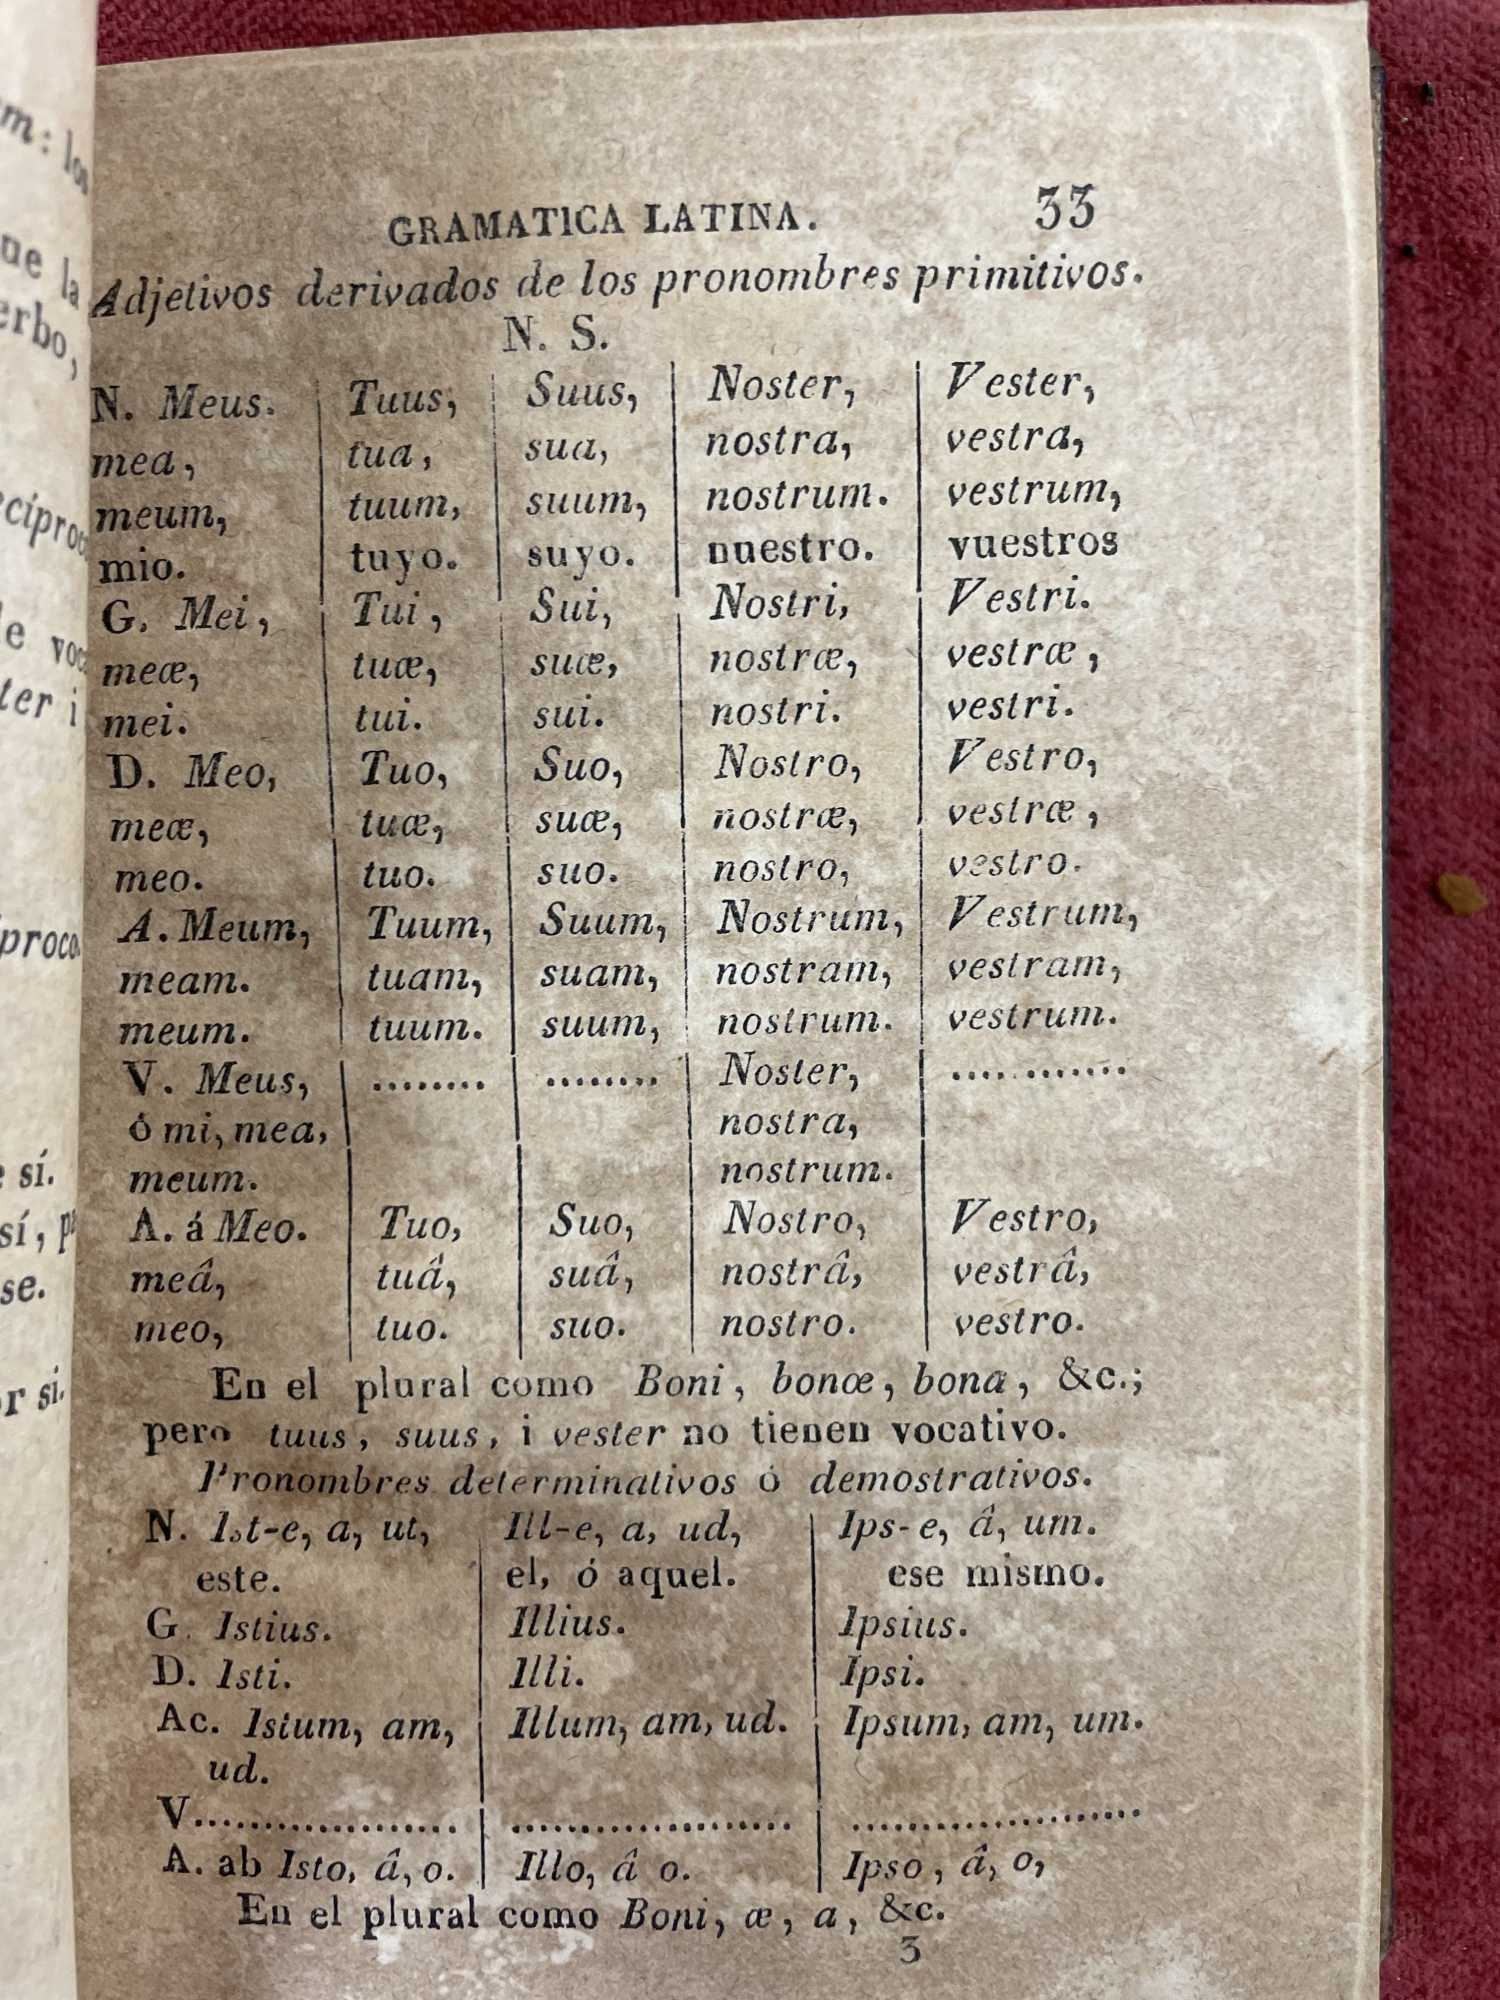 m: los
ue la
erbo,
GRAMATICA LATINA. 33
Adjetivos derivados de los pronombres primitivos.
N. S.
N. Meus. | Tuus, | Suus, | Noster, | Vester,
mea, | tua, | sua, | nostra, | vestra,
meum, | tuum, | suum, | nostrum. | vestrum,
mio. | tuyo. | suyo. | nuestro. | vuestros
G. Mei, | Tui, | Sui, | Nostri, | Vestri.
meæ, | tuæ, | suæ, | nostræ, | vestræ,
mei. | tui. | sui. | nostri. | vestri.
D. Meo, | Tuo, | Suo, | Nostro, | Vestro,
meæ, | tuæ, | suæ, | nostræ, | vestræ,
meo. | tuo. | suo. | nostro, | vestro.
A. Meum, | Tuum, | Suum, | Nostrum, | Vestrum,
meam. | tuam, | suam, | nostram, | vestram,
meum. | tuum. | suum, | nostrum. | vestrum.
V. Meus, | ........ | ........ | Noster, | ............
ó mi, mea, | | | nostra, |
meum. | | | nostrum. |
A. á Meo. | Tuo, | Suo, | Nostro, | Vestro,
meâ, | tuâ, | suâ, | nostrâ, | vestrâ,
meo, | tuo. | suo. | nostro. | vestro.
En el plural como Boni, bonœ, bona, &c.;
pero tuus, suus, i vester no tienen vocativo.
Pronombres determinativos ó demostrativos.
N. Ist-e, a, ut, | Ill-e, a, ud, | Ips-e, â, um.
este. | el, ó aquel. | ese mismo.
G. Istius. | Illius. | Ipsius.
D. Isti. | Illi. | Ipsi.
Ac. Istum, am, | Illum, am, ud. | Ipsum, am, um.
ud.
V................... | .................... | .....................
A. ab Isto, â, o. | Illo, â o. | Ipso, â, o,
En el plural como Boni, æ, a, &c.
3